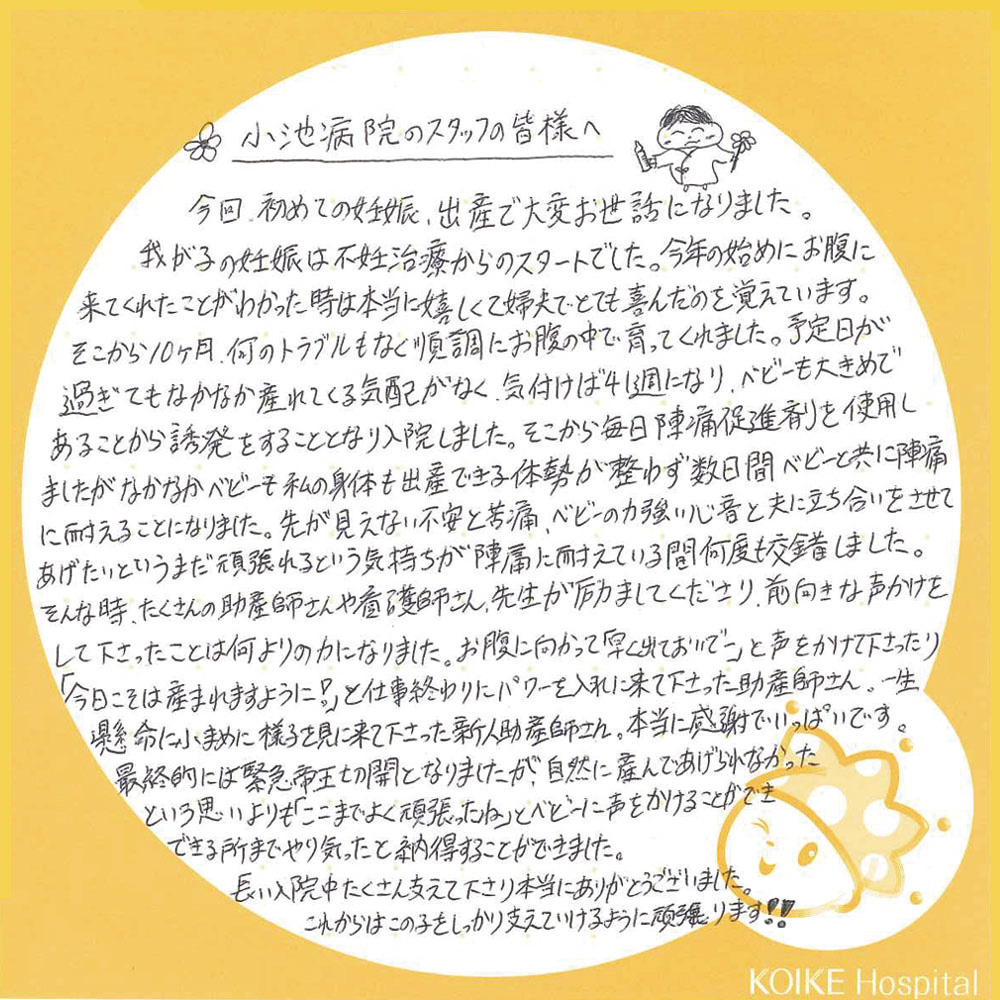 小池病院のスタッフの皆様へ
今回、初めての妊娠、出産で大変お世話になりました。
我が子の妊娠は不妊治療からのスタートでした。今年の始めにお腹に
来てくれたことがわかった時は本当に嬉しくて婦夫でとても喜んだのを覚えています。
そこから10ヶ月、何のトラブルもなく順調にお腹の中で育ってくれました。予定日が
過ぎてもなかなか産れてくる気配がなく、気付けば41週になり、ベビーも大きめで
あることから誘発をすることとなり入院しました。そこから毎日陣痛促進剤を使用し
ましたがなかなかベビーも私の身体も出産できる体勢が整わず数日間ベビーと共に陣痛
に耐えることになりました。先が見えない不安と苦痛、ベビーの力強い心音と夫に立ち合いをさせて
あげたいというまだ頑張れるという気持ちが陣痛に耐えている間何度も交錯しました。
そんな時、たくさんの助産師さんや看護師さん、先生が励ましてくださり、前向きな声かけを
して下さったことは何よりの力になりました。お腹に向かって「早く出ておいでー」と声をかけて下さったり
「今日こそは産まれますように!」と仕事終わりにパワーを入れに来て下さった助産師さん。一生
懸命に小まめに様子を見に来て下さった新人助産師さん。本当に感謝でいっぱいです。
最終的には緊急帝王切開となりましたが、自然に産んであげられなかった
という思いよりも「ここまでよく頑張ったね」とベビーに声をかけることができ
できる所までやり気ったと納得することができました。
長い入院中たくさん支えて下さり本当にありがとうございました。
これからはこの子をしっかり支えていけるように頑張ります!!
KOIKE Hospital